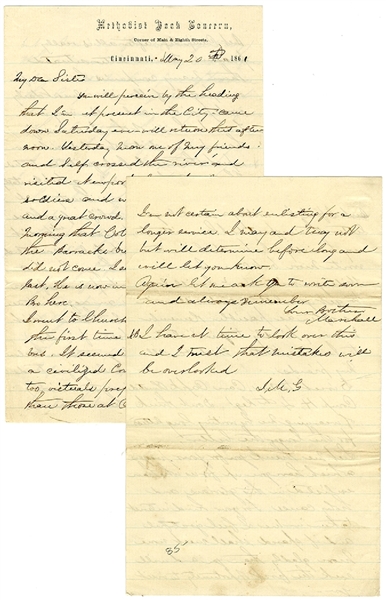 Methodist Book Concern,
Corner of Main & Eighth Streets,
Cincinnati, May 20th 1861
My Dear Sister
You will percein by the heading
that I'm at present in the City. came
down Saturday eve - will return this after
noon. Yesterday some of my friends
and self crossed the river and
visited Newport
soldiers and
and a great crowd
the Barracks
did not come. I
last. He is now in
be here
I went to Church
the first time
ens. It seemed
a civilized Co
too, victuals
than those at C
I'm not certain about enlisting for a
longer service. I may and may not
but will determine before long and
will let you know.
Again let me ask you to write soon
and always remember
Your Brother
Marshall
I haven't time to look over this
and I trust that mistakes will
be overlooked
J.M.G
35